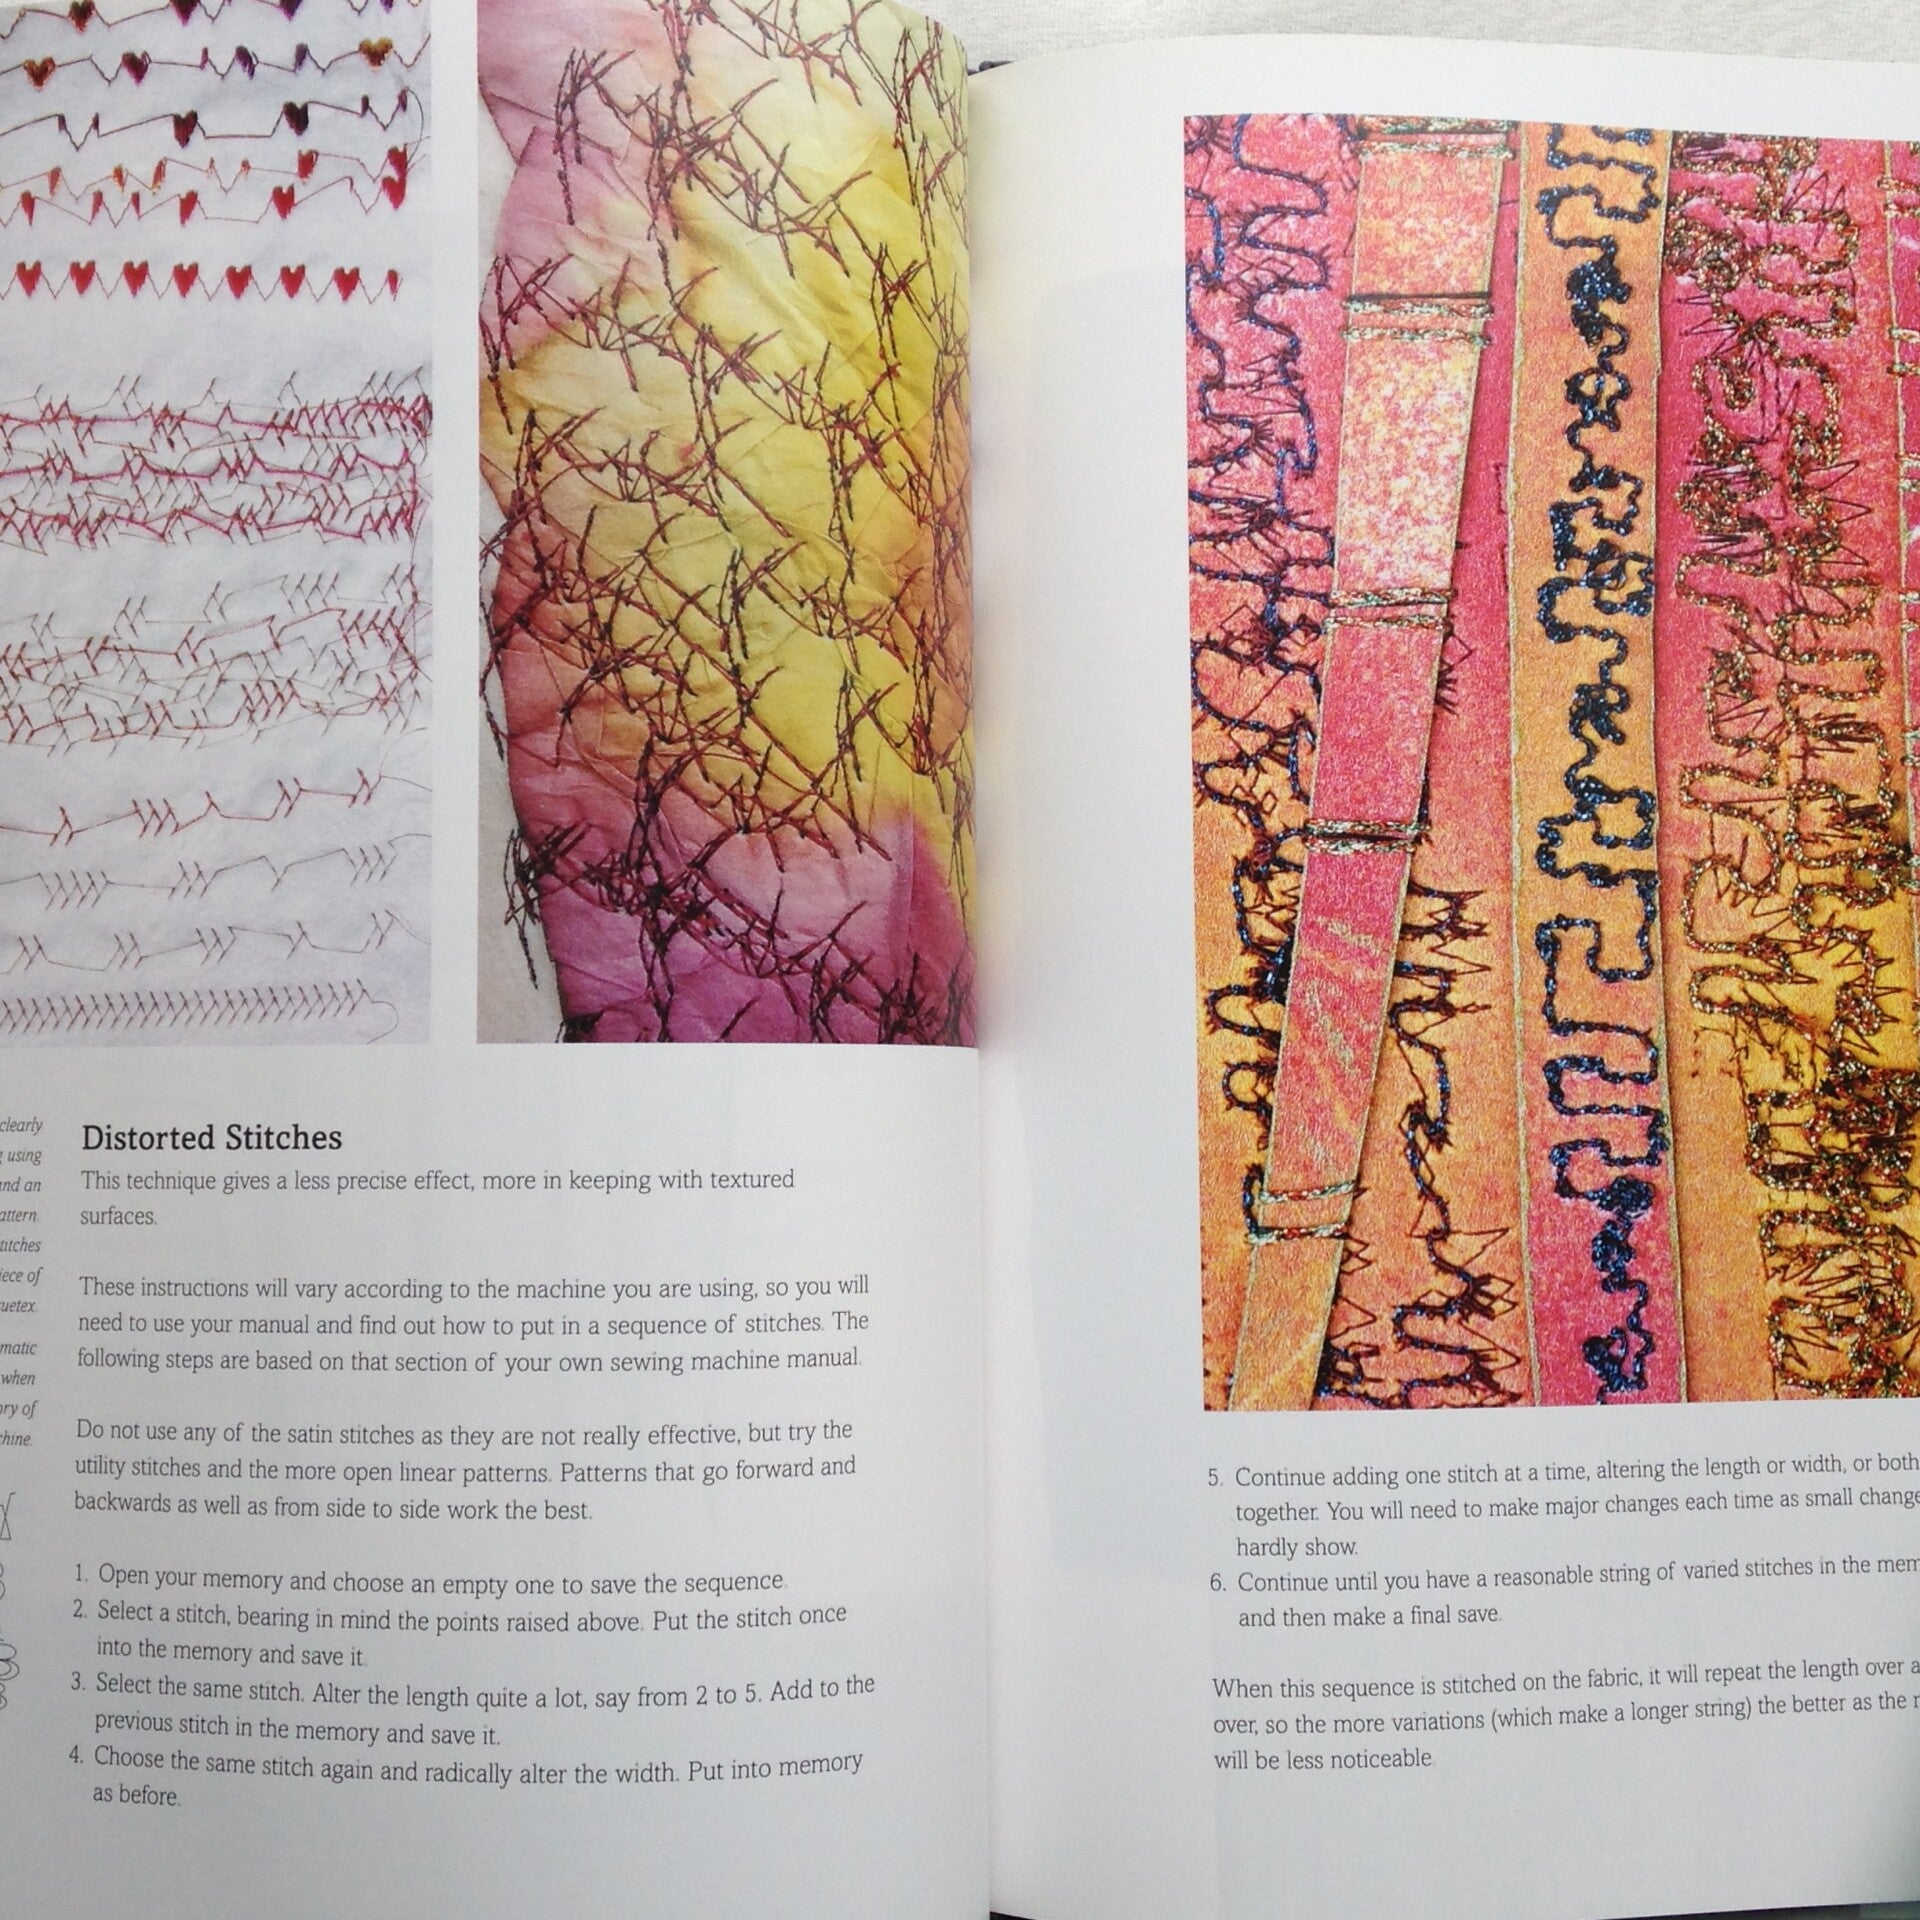 clearly
using
and an
attern
titches
iece of
uetex.
matic
when
ory of
chine.
Distorted Stitches
This technique gives a less precise effect, more in keeping with textured
surfaces.
These instructions will vary according to the machine you are using, so you will
need to use your manual and find out how to put in a sequence of stitches. The
following steps are based on that section of your own sewing machine manual.
Do not use any of the satin stitches as they are not really effective, but try the
utility stitches and the more open linear patterns. Patterns that go forward and
backwards as well as from side to side work the best.
1. Open your memory and choose an empty one to save the sequence.
2. Select a stitch, bearing in mind the points raised above. Put the stitch once
into the memory and save it.
3. Select the same stitch. Alter the length quite a lot, say from 2 to 5. Add to the
previous stitch in the memory and save it.
4. Choose the same stitch again and radically alter the width. Put into memory
as before.
5. Continue adding one stitch at a time, altering the length or width, or both
together. You will need to make major changes each time as small change
hardly show.
6. Continue until you have a reasonable string of varied stitches in the mem
and then make a final save.
When this sequence is stitched on the fabric, it will repeat the length over a
over, so the more variations (which make a longer string) the better as the r
will be less noticeable.